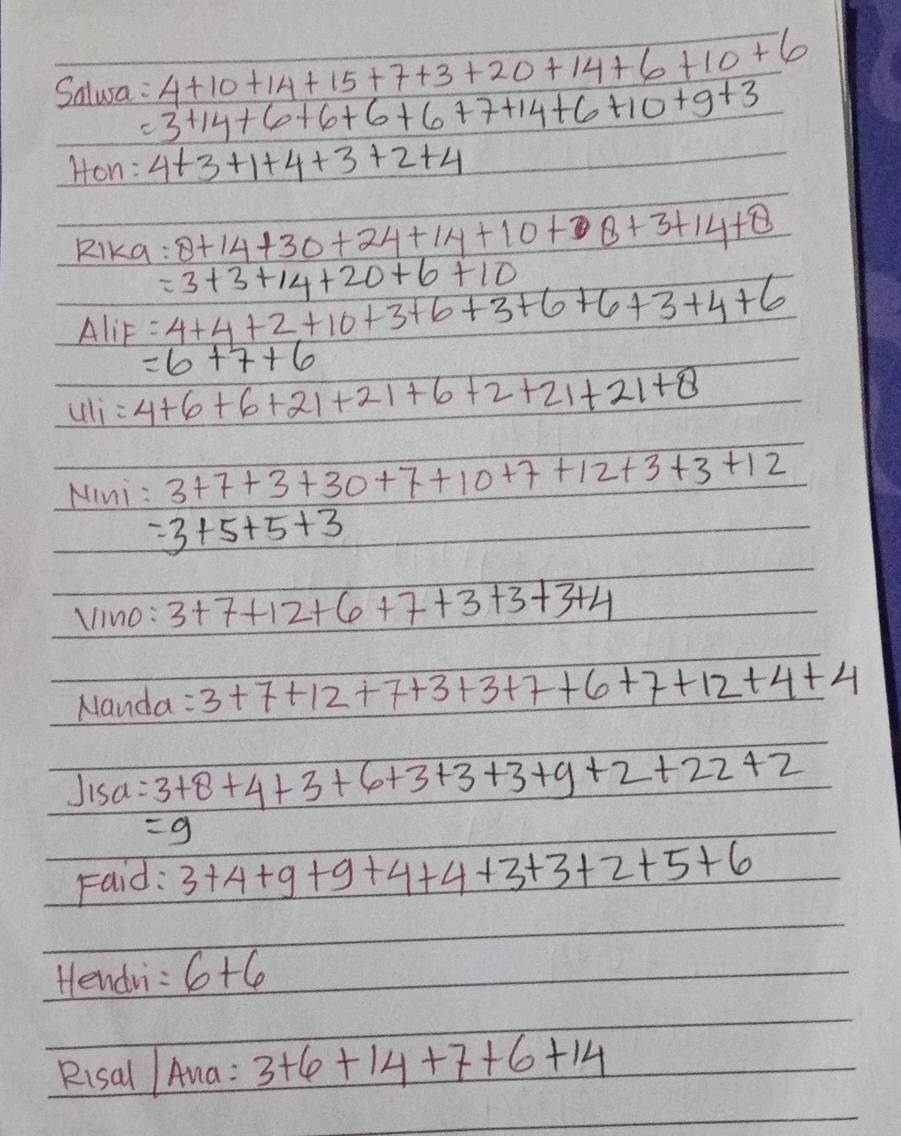 Salwa: 4+10+14+15+7+3+20+14+6+10+6
=3+14+6+6+6+6+7+14+6+10+9+3
Hon: 4+3+1+4+3+2+4
Rika: 8+14+30+24+14+10+8+3+14+8
=3+3+14+20+6+10
Alif = 4+4+2+10+3+6+3+6+6+3+4+6
=6+7+6
Uli: 4+6+6+21+21+6+2+21+21+8
Nini: 3+7+3+30+7+10+7+12+3+3+12
=3+5+5+3
Vino: 3+7+12+6+7+3+3+3+4
Nanda: 3+7+12+7+3+3+7+6+7+12+4+4
Jisa: 3+8+4+3+6+3+3+3+9+2+22+2
=9
Faid: 3+4+9+9+4+4+3+3+2+5+6
Hendri: 6+6
Risal / Ana: 3+6+14+7+6+14